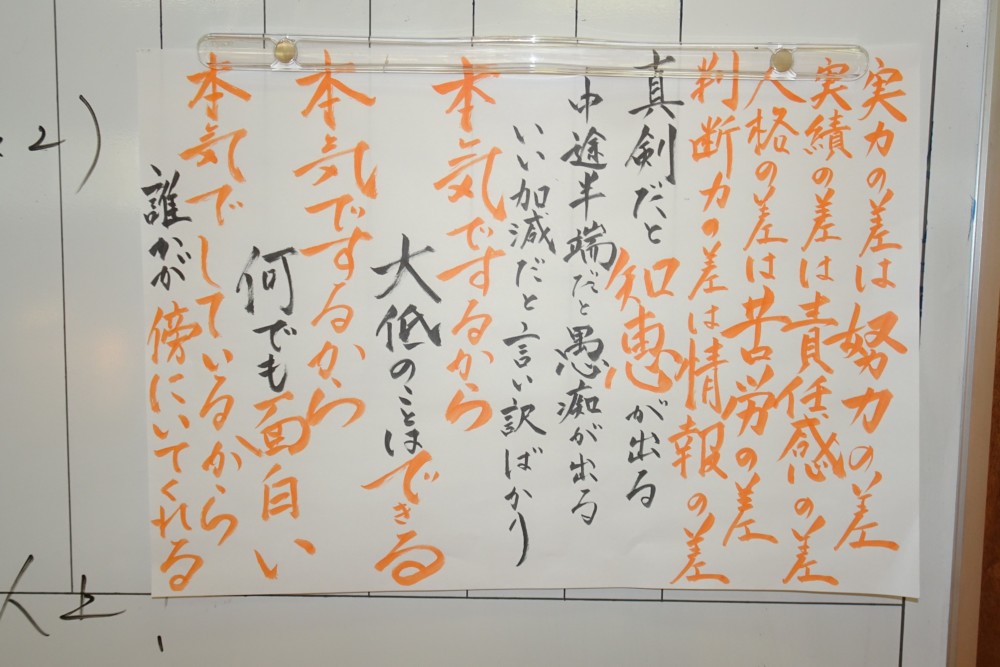 実力の差は努力の差
実績の差は責任感の差
人格の差は苦労の差
判断力の差は情報の差
真剣だと知恵が出る
中途半端だと愚痴が出る
いい加減だと言い訳ばかり
本気でするから
大低のことはできる
本気でするから
何でも面白い
本気でしているから
誰かが傍にいてくれる
2)
人上